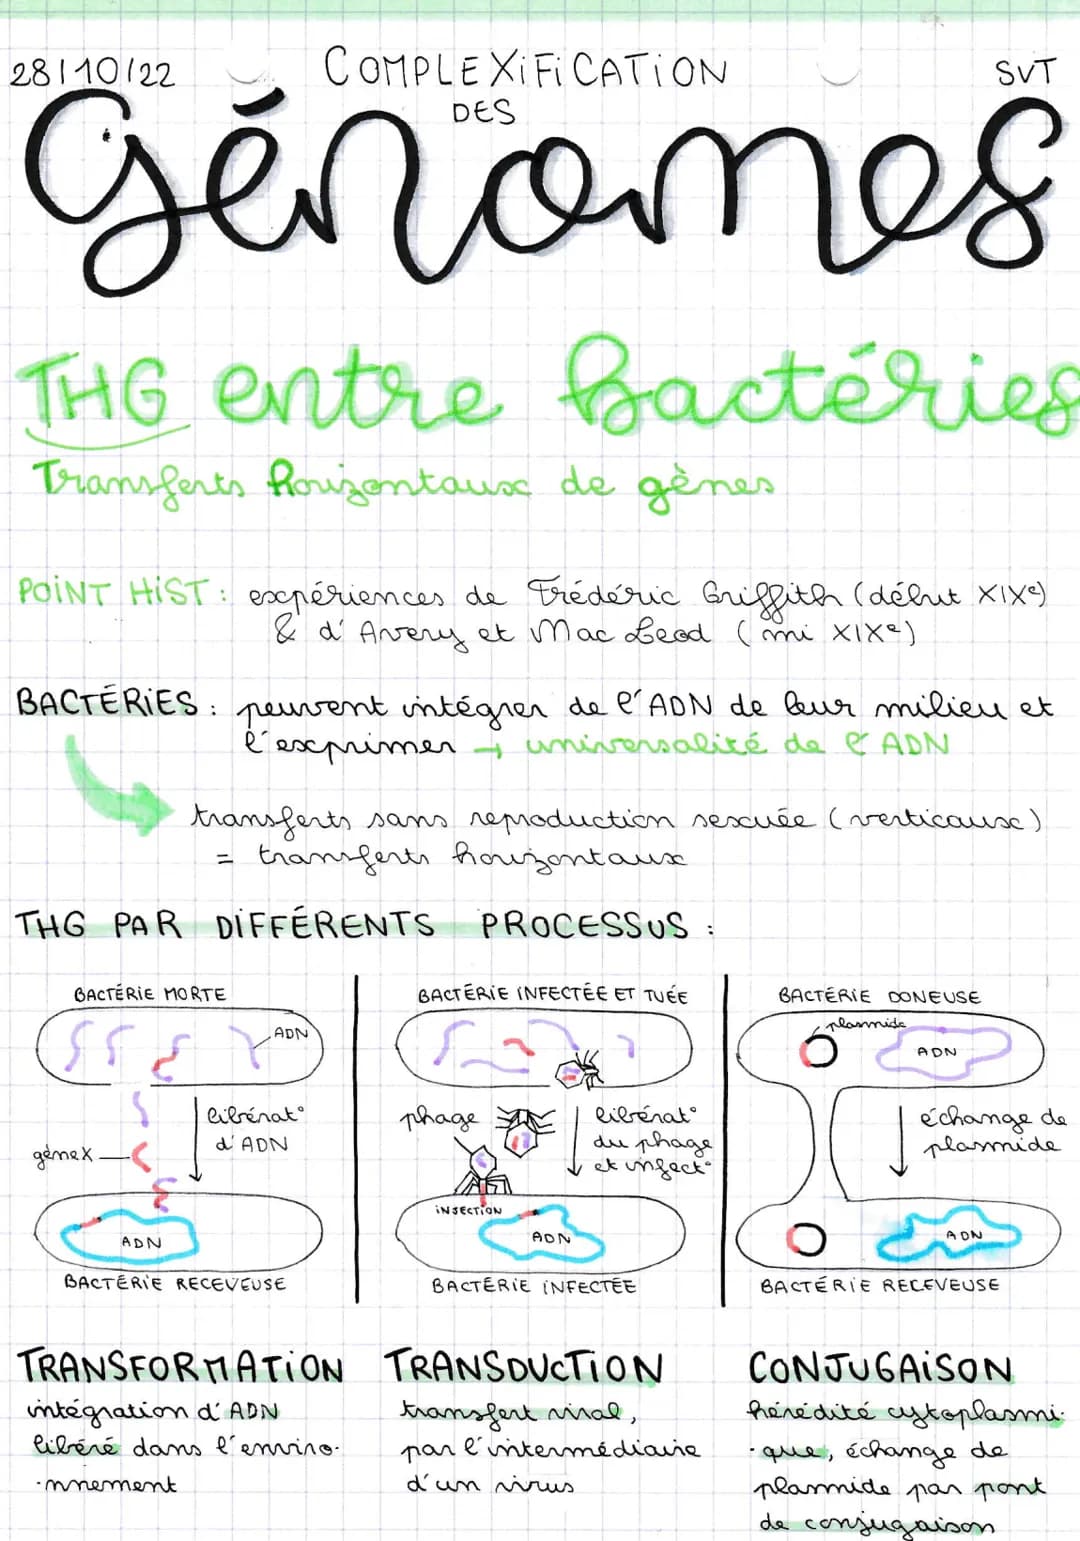 28/10/22
COMPLEXIFICATION
SVT
DES
génomes
THG entre bactéries
Transferts horizontaux de gènes
POINT HIST : expériences de Frédéric Griffith (début XIXe)
& d'Avery et Mac Leod (mi XIXe)
BACTÉRIES : peuvent intégrer de l'ADN de leur milieu et
l'exprimer → universalité de l'ADN
transferts sans reproduction sexuée (verticaux)
= transferts horizontaux
THG PAR DIFFÉRENTS PROCESSUS :
BACTÉRIE MORTE
ADN
libérat°
d'ADN
gène X
ADN
BACTÉRIE RECEVEUSE
BACTÉRIE INFECTÉE ET TUÉE
phage
libérat°
du phage
et infect°
INJECTION
ADN
BACTÉRIE INFECTÉE
BACTÉRIE DONEUSE
plasmide
ADN
échange de
plasmide
ADN
BACTÉRIE RECEVEUSE
TRANSFORMATION
intégration d'ADN
libéré dans l'enviro-
-nnement
TRANSDUCTION
transfert viral,
par l'intermédiaire
d'un virus
CONJUGAISON
hérédité cytoplasmi-
-que, échange de
plasmide par pont
de conjugaison